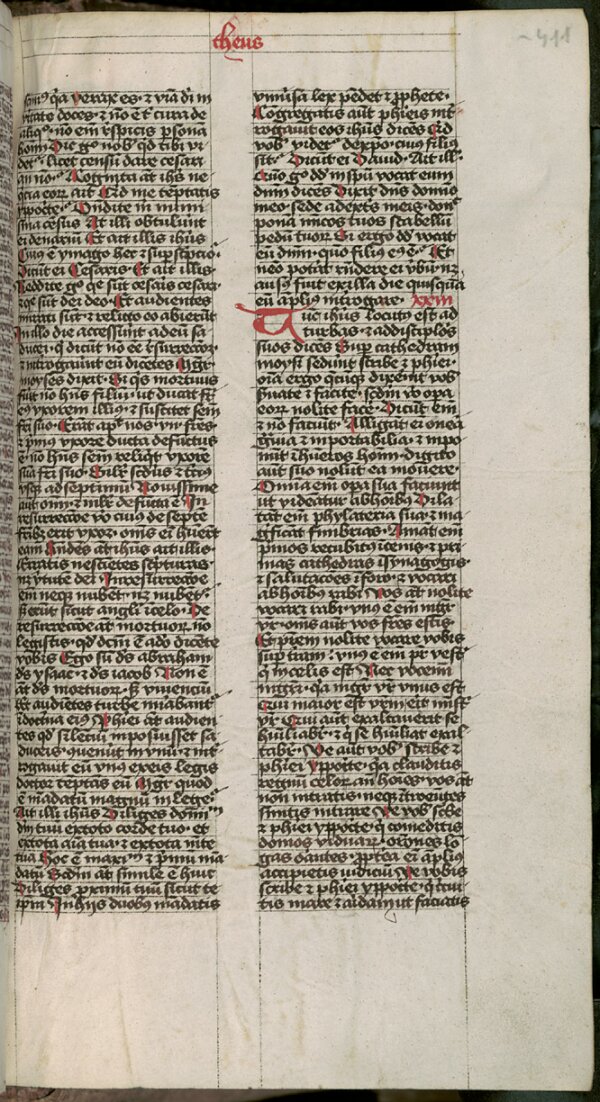 theus
411
scimus quia verax es · et viam dei in
veritate doces · et non est tibi cura de
aliquo · non enim respicis personam
hominum Dic ergo nobis quid tibi vi
detur · licet censum dare cesari
an non · Cognita autem ihesus ne
quicia eorum ait Quid me temptatis
ypocrite · Ostendite mihi numi
sma census At illi obtulerunt
ei denarium Et ait illis ihesus
Cuius est ymago hec et superscriptio ·
Dicunt ei Cesaris · Et ait illis ·
Reddite ergo que sunt cesaris cesari
et que sunt dei deo · Et audientes
mirati sunt et relicto eo abierunt
In illo die accesserunt ad eum sa
ducei · qui dicunt non esse resurrectionem
et interrogaverunt eum dicentes Magister
moyses dixit · Si quis mortuus
fuerit non habens filium ut ducat frater
eius uxorem illius et suscitet semen
fratri suo · Erant apud nos vii fratres
et primus uxore ducta defunctus
est non habens semen reliquit uxorem
suam fratri suo · Similiter secundus et tercius
usque ad septimum Novissime
autem omnium et mulier defuncta est In
resurrectione vero cuius de septem
fratribus erit uxor · omnes enim habuerunt
eam Respondens autem ihesus ait illis ·
Erratis nescientes scripturas ·
neque virtutem dei · In resurrectione
enim neque nubent · neque nubentur ·
sed erunt sicut angeli in celo · De
resurrectione autem mortuorum non
legistis · quod dictum est a deo dicente
vobis Ego sum deus abraham
deus ysaac · et deus iacob Non est
autem deus mortuorum · sed viventium
Et audientes turbe mirabantur
in doctrina eius Pharisei autem audien
tes quod silencium imposuisset sa
duceis · convenerunt in unum et inter
rogavit eum unus ex eis legis
doctor temptans eum Magister quod
est mandatum magnum in lege ·
Ait illi ihesus Diliges dominum
deum tuum ex toto corde tuo · et
ex tota anima tua · et ex tota mente
tua Hoc est maximum et primum man
datum Secundum autem simile est huic
Diliges proximum tuum sicut te
ipsum In hiis duobus mandatis
universa lex pendet et prophete ·
Congregatis autem phariseis inter
rogavit eos ihesus dicens Quid
vobis videtur de christo cuius filius
sit · Dicunt ei David · Ait illis
Quomodo ergo david in spiritu vocat eum
dominum dicens Dixit dominus domino
meo · sede a dextris meis · donec
ponam inimicos tuos scabellum
pedum tuorum Si ergo david vocat
eum dominum · quomodo filius eius est · Et
nemo poterat respondere ei verbum · neque
ausus fuit ex illa die quisquam
eum amplius interrogare · xxiii
Tunc ihesus locutus est ad
turbas · et ad discipulos
suos dicens Super cathedram
moysi sederunt scribe et pharisei ·
omnia ergo quecumque dixerint vobis
servate et facite · secundum vero opera
eorum nolite facere · Dicunt enim
et non faciunt · Alligant enim onera
gravia et importabilia · et impo
nunt in humeros hominum · digito
autem suo nolunt ea movere ·
Omnia enim opera sua faciunt
ut videantur ab hominibus Dila
tant enim phylateria sua · et ma
gnificant fimbrias · Amant enim
primos recubitus in cenis · et pri
mas cathedras in synagogis ·
et salutaciones in foro · et vocari
ab hominibus rabi Vos autem nolite
vocari rabi · unus est enim magister
vester · omnes autem vos fratres estis ·
Et patrem nolite vocare vobis
super terram · unus est enim pater vester
qui in celis est Nec vocemini
magistri · quia magister vester unus est
Qui maior est vestrum erit minister
vester Qui autem exaltaverit se
humiliabitur · et qui se humiliat exal
tabitur · Ve autem vobis scribe et
pharisei ypocrite · quia clauditis
regnum celorum ante homines · vos autem
non intratis · neque introeuntes
sinitis intrare Ve vobis scribe
et pharisei ypocrite · qui comeditis
domos viduarum · orationes lo
gas orantes · propterea enim amplius
accipietis iudicium Ve vobis
scribe et pharisei ypocrite · qui circui
tis mare et aridam ut faciatis